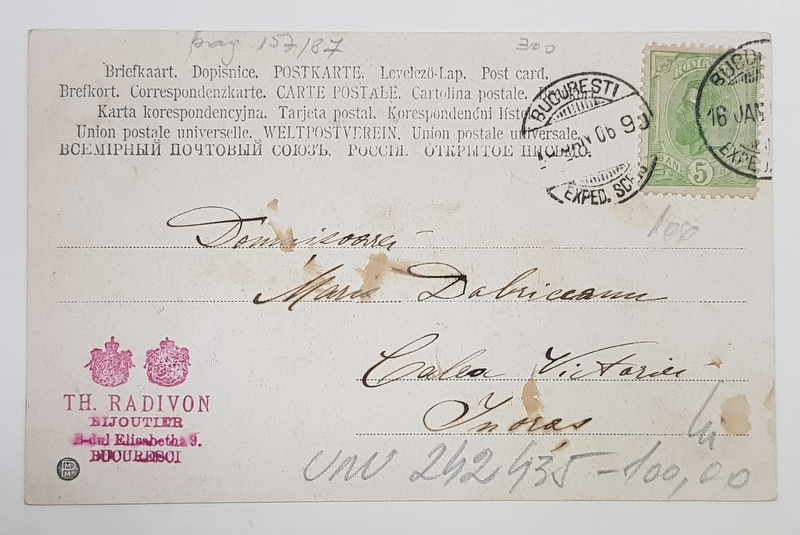 bag 157/87 300
Briefkaart. Dopisnice. POSTKARTE. Levelező-Lap. Post card.
Brefkort. Correspondenzkarte. CARTE POSTALE. Cartolina postale.
Karta korespondencyjna. Tarjeta postal. Korespondenční lístek.
Union postale universelle. WELTPOSTVEREIN. Union postale universale.
ВСЕМІРНЫЙ ПОЧТОВЫЙ СОЮЗЪ. РОССІЯ. ОТКРЫТОЕ ПИСЬМО.
BUCURESTI
JAN 06 9
EXPED. SCRIS
ROMANIA
BANI 5
BUCU
16 JAN
EXPED.
100
Domnisoarei
Maria Dobriceanu
Calea Victoriei
In oras
TH. RADIVON
BIJOUTIER
B-dul Elisabetha 9.
BUCURESCI
242435 -100,00